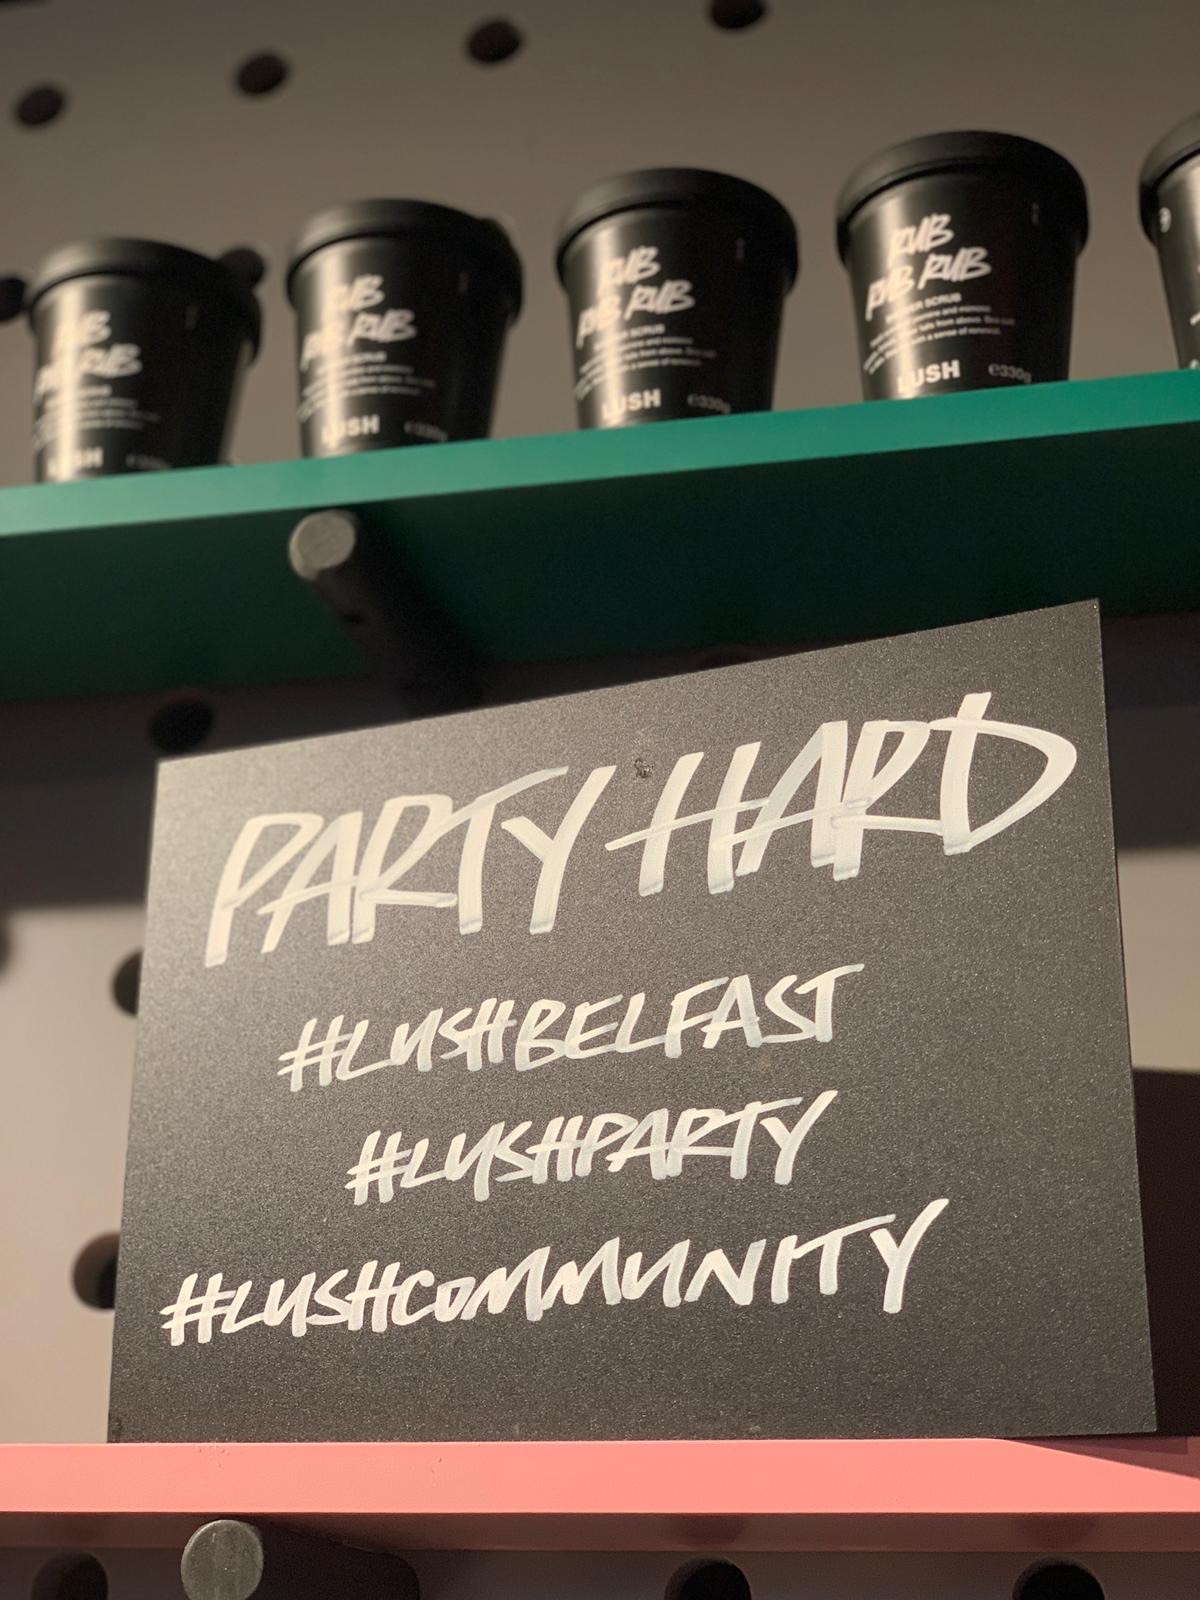 RUB
RUB
LUSH
RUB
RUB RUB
SHOWER SCRUB
LUSH
℮330g
RUB
RUB RUB
SHOWER SCRUB
LUSH
℮330g
RUB
RUB RUB
SHOWER SCRUB
LUSH
℮330g
PARTY HARD
#LUSHBELFAST
#LUSHPARTY
#LUSHCOMMUNITY